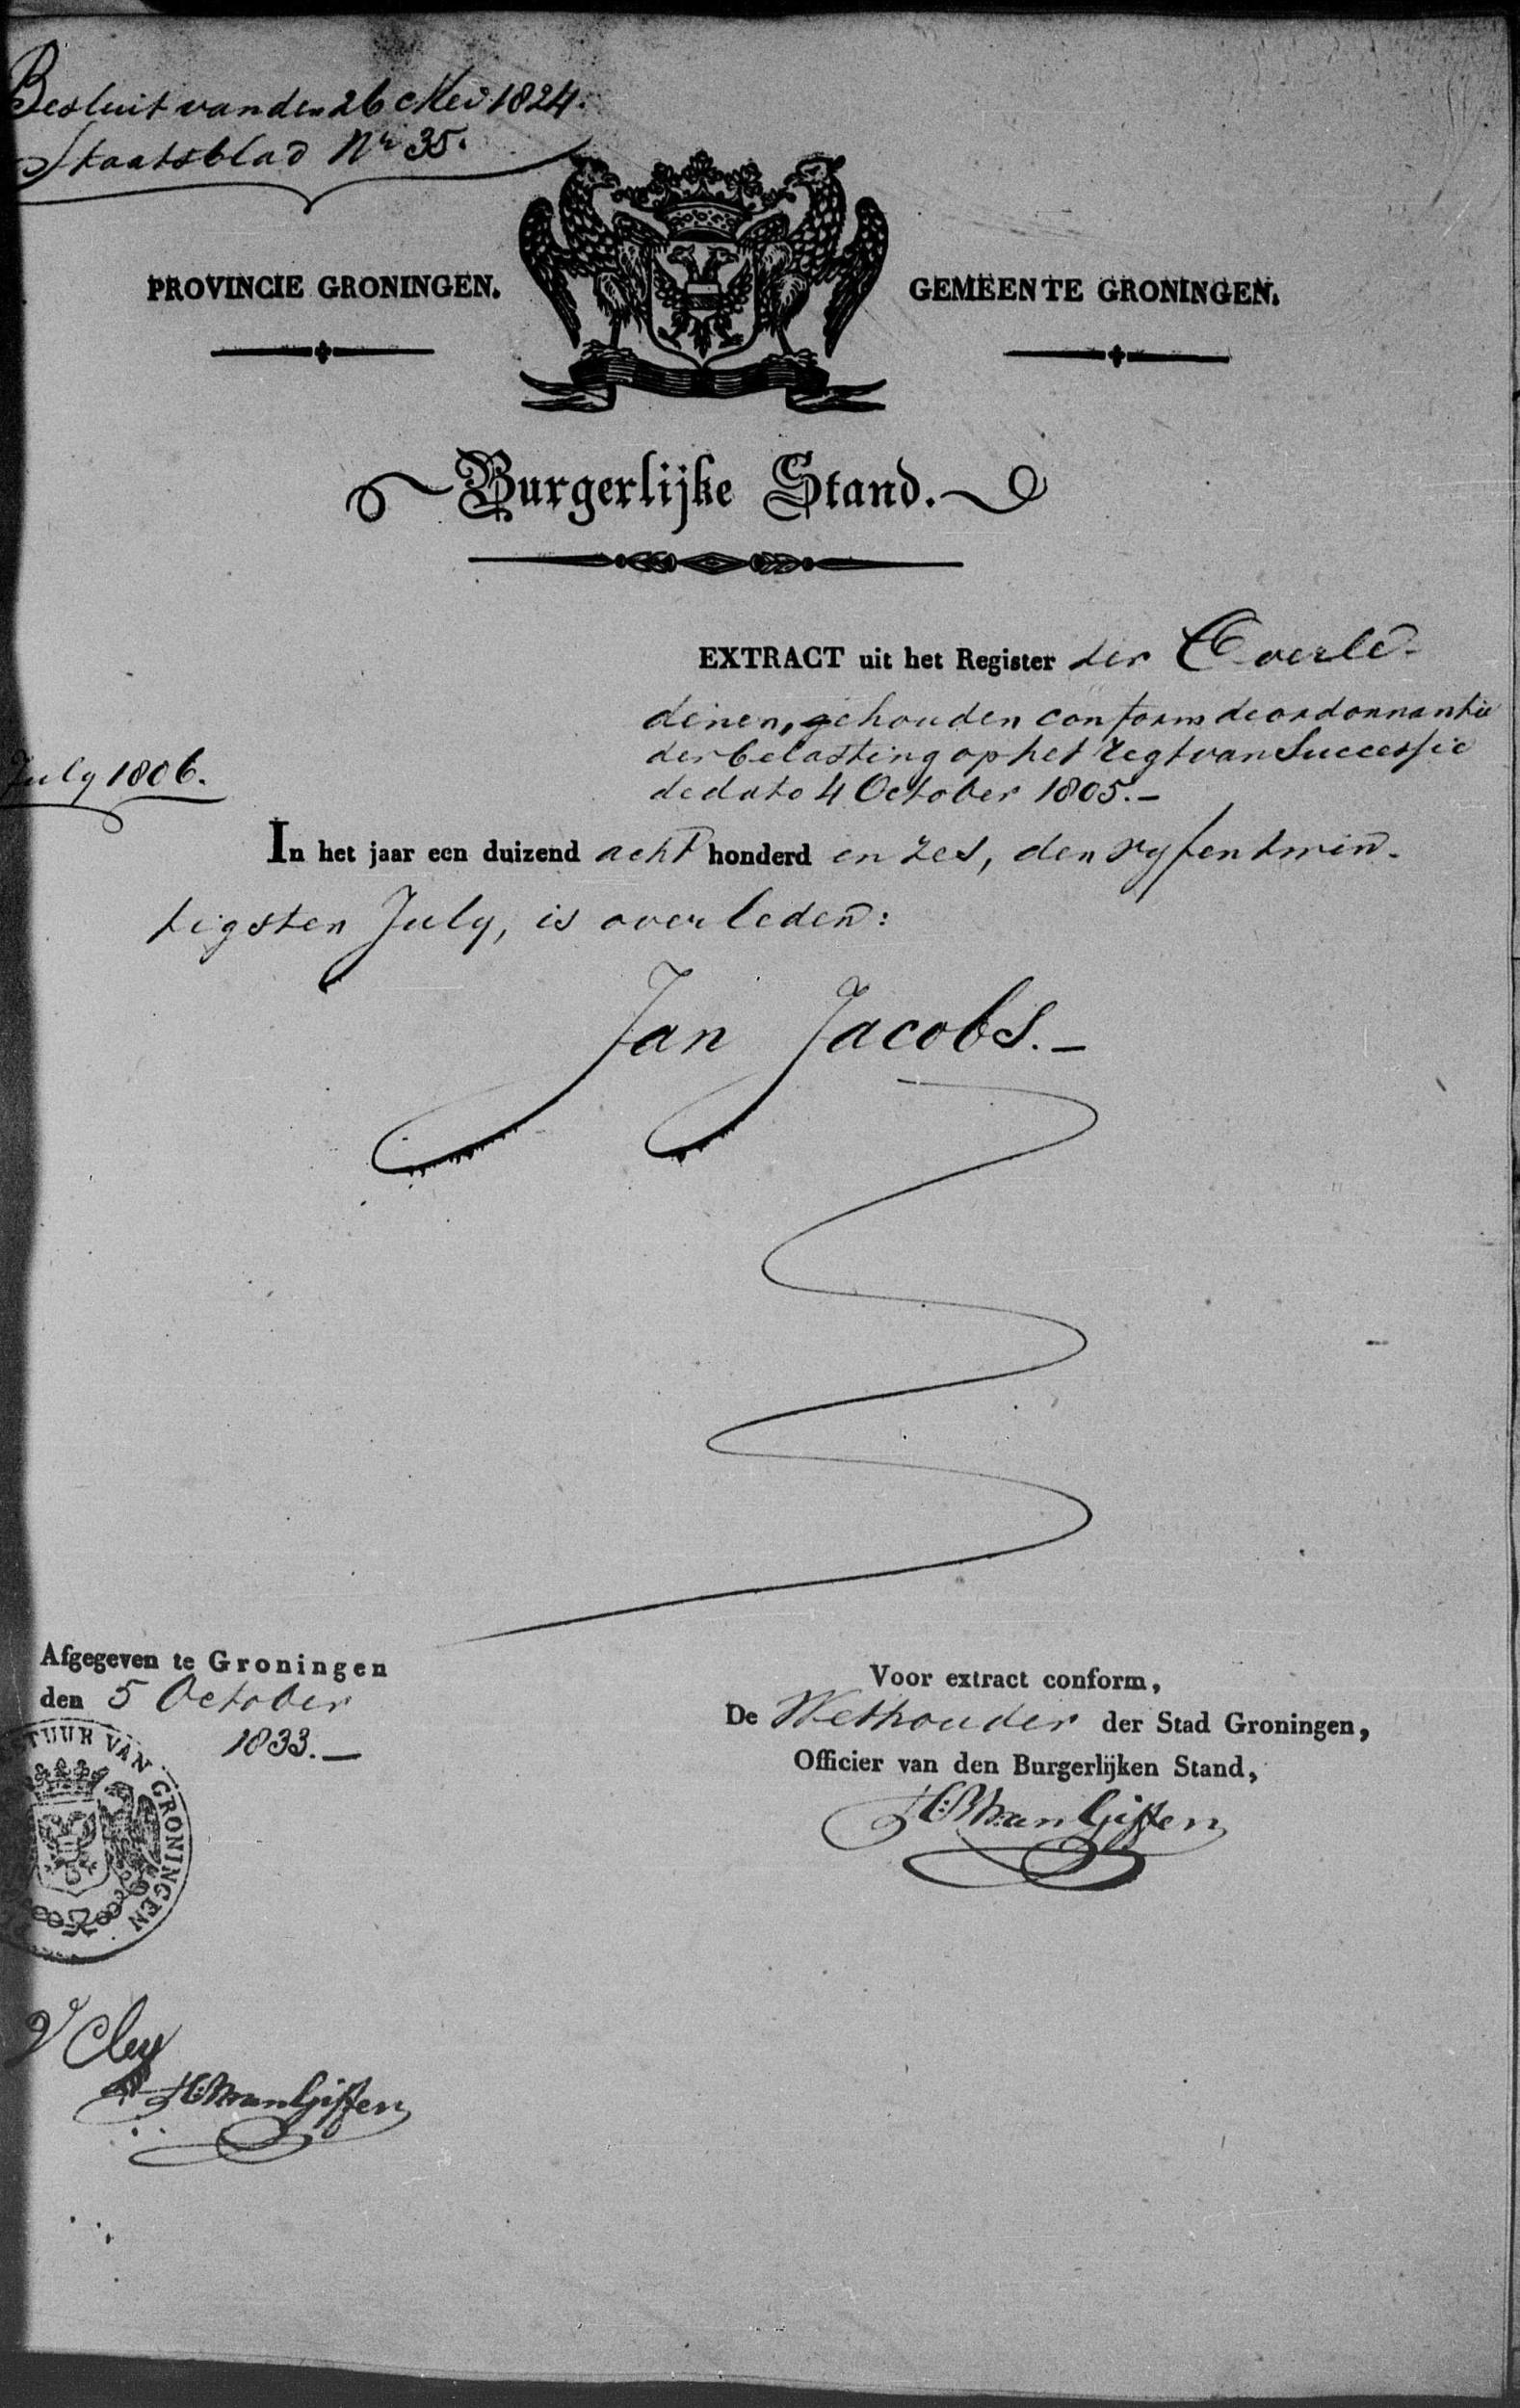 Besluit van den 26 Mei 1824.
Staatsblad Nr 35.
PROVINCIE GRONINGEN. GEMEENTE GRONINGEN.
Burgerlijke Stand.
EXTRACT uit het Register der Overle-
denen, gehouden conform de ordonnantie
der belasting op het regt van Successie
de dato 4 October 1805.-
July 1806.
In het jaar een duizend acht honderd en zes, den vyfentwin-
tigsten July, is overleden:
Jan Jacobs.-
Afgegeven te Groningen
den 5 October
1833.-
Voor extract conform,
De Wethouder der Stad Groningen,
Officier van den Burgerlijken Stand,
van Giffen
TUUR VAN GRONINGEN
van Giffen